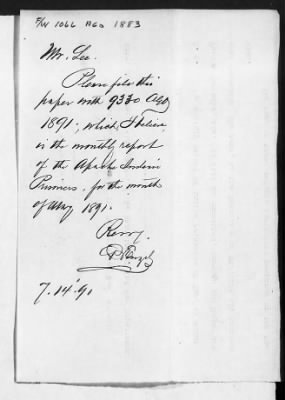 F/W 1066 AGO 1883
Mr. Lee.
Please file this
paper with 9330 AGO
1891; which I believe
is the monthly report
of the Apache Indian
Prisoners for the month
of May 1891.
7.14.91